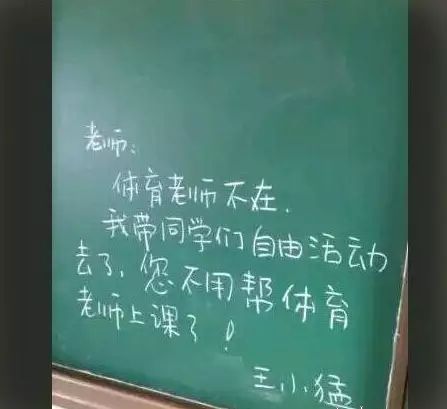 老师:
体育老师不在.
我带同学们自由活动
去了,您不用帮体育
老师上课了!
王小猛